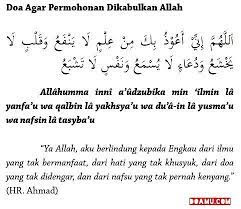 Doa Agar Permohonan Dikabulkan Allah
اَللّٰهُمَّ إِنِّيْ أَعُوْذُ بِكَ مِنْ عِلْمٍ لَا يَنْفَعُ وَقَلْبٍ لَا
يَخْشَعُ وَدُعَاءٍ لَا يُسْمَعُ وَنَفْسٍ لَا تَشْبَعُ
Allâhumma innî a'ûdzubika min 'ilmin lâ
yanfa'u wa qalbin lâ yakhsya'u wa du'â-in lâ yusma'u
wa nafsin lâ tasyba'u
"Ya Allah, aku berlindung kepada Engkau dari ilmu
yang tak bermanfaat, dari hati yang tak khusyuk, dari doa
yang tak didengar, dan dari nafsu yang tak pernah kenyang."
(HR. Ahmad)
DOAMU.COM